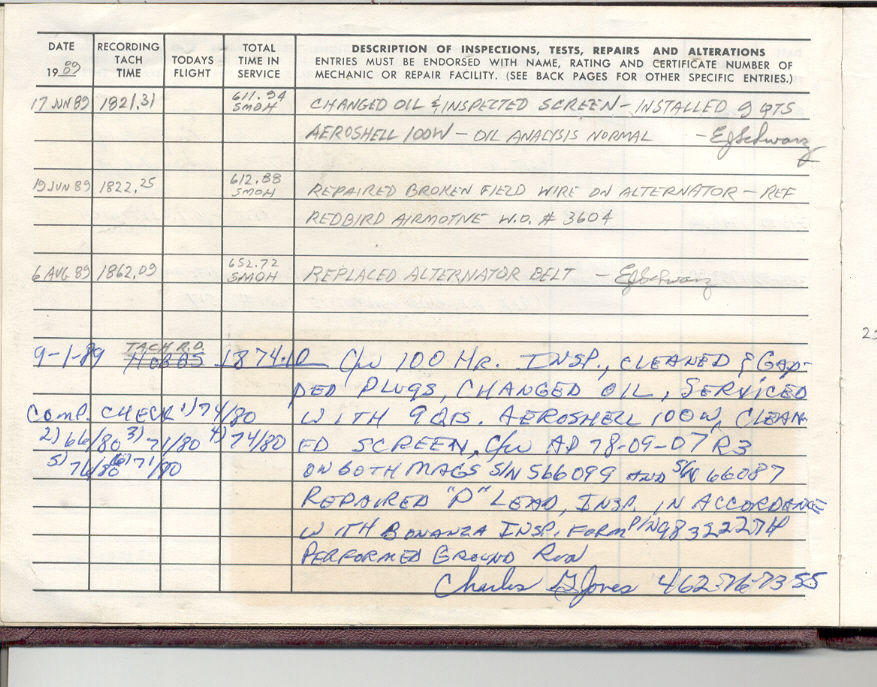 DATE RECORDING TODAYS TOTAL DESCRIPTION OF INSPECTIONS, TESTS, REPAIRS AND ALTERATIONS
1989 TACH TIME FLIGHT TIME IN SERVICE ENTRIES MUST BE ENDORSED WITH NAME, RATING AND CERTIFICATE NUMBER OF
MECHANIC OR REPAIR FACILITY. (SEE BACK PAGES FOR OTHER SPECIFIC ENTRIES.)
17 JUN 89 1821.31 611.94 SMOH CHANGED OIL & INSPECTED SCREEN - INSTALLED 9 QTS
AEROSHELL 100W - OIL ANALYSIS NORMAL - EJSchwarz
19 JUN 89 1822.25 612.88 SMOH REPAIRED BROKEN FIELD WIRE ON ALTERNATOR - REF
REDBIRD AIRMOTIVE W.O. # 3604
6 AUG 89 1862.09 652.72 SMOH REPLACED ALTERNATOR BELT - EJSchwarz
TACH R.D.
9-1-89 HOBBS 1874.10 C/W 100 HR. INSP., CLEANED & GAP-
PED PLUGS, CHANGED OIL, SERVICED
COMP. CHECK 1) 74/80 WITH 9 QTS. AEROSHELL 100W, CLEAN-
2) 66/80 3) 71/80 4) 74/80 ED SCREEN, C/W AD 78-09-07 R3
5) 76/80 6) 71/80 ON BOTH MAGS S/N 566099 AND S/N 66087
REPAIRED "P" LEAD, INSP. IN ACCORDENCE
WITH BONANZA INSP. FORM P/N 9832227H
PERFORMED GROUND RUN
Charles G Jones 462-76-7355